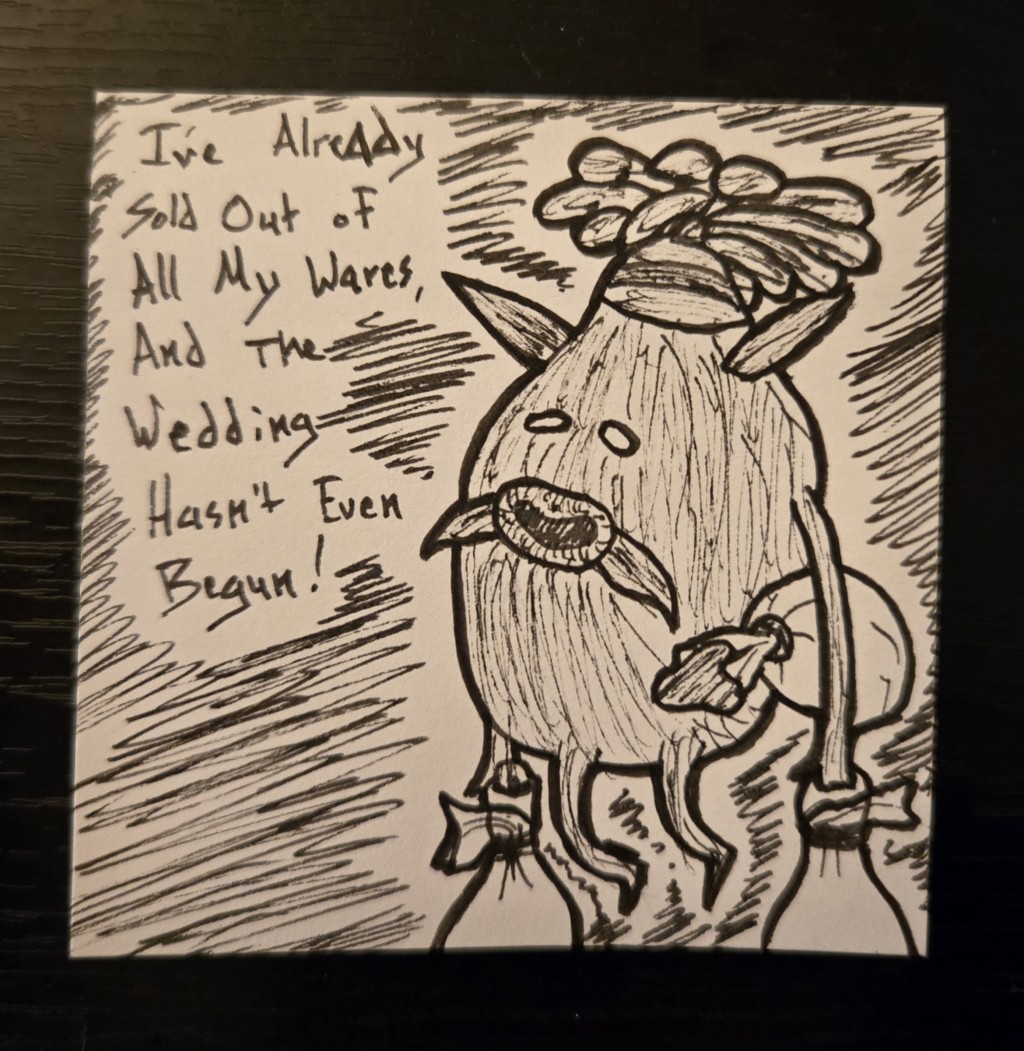 I've Already
Sold Out of
All My Wares,
And The
Wedding
Hasn't Even
Begun!